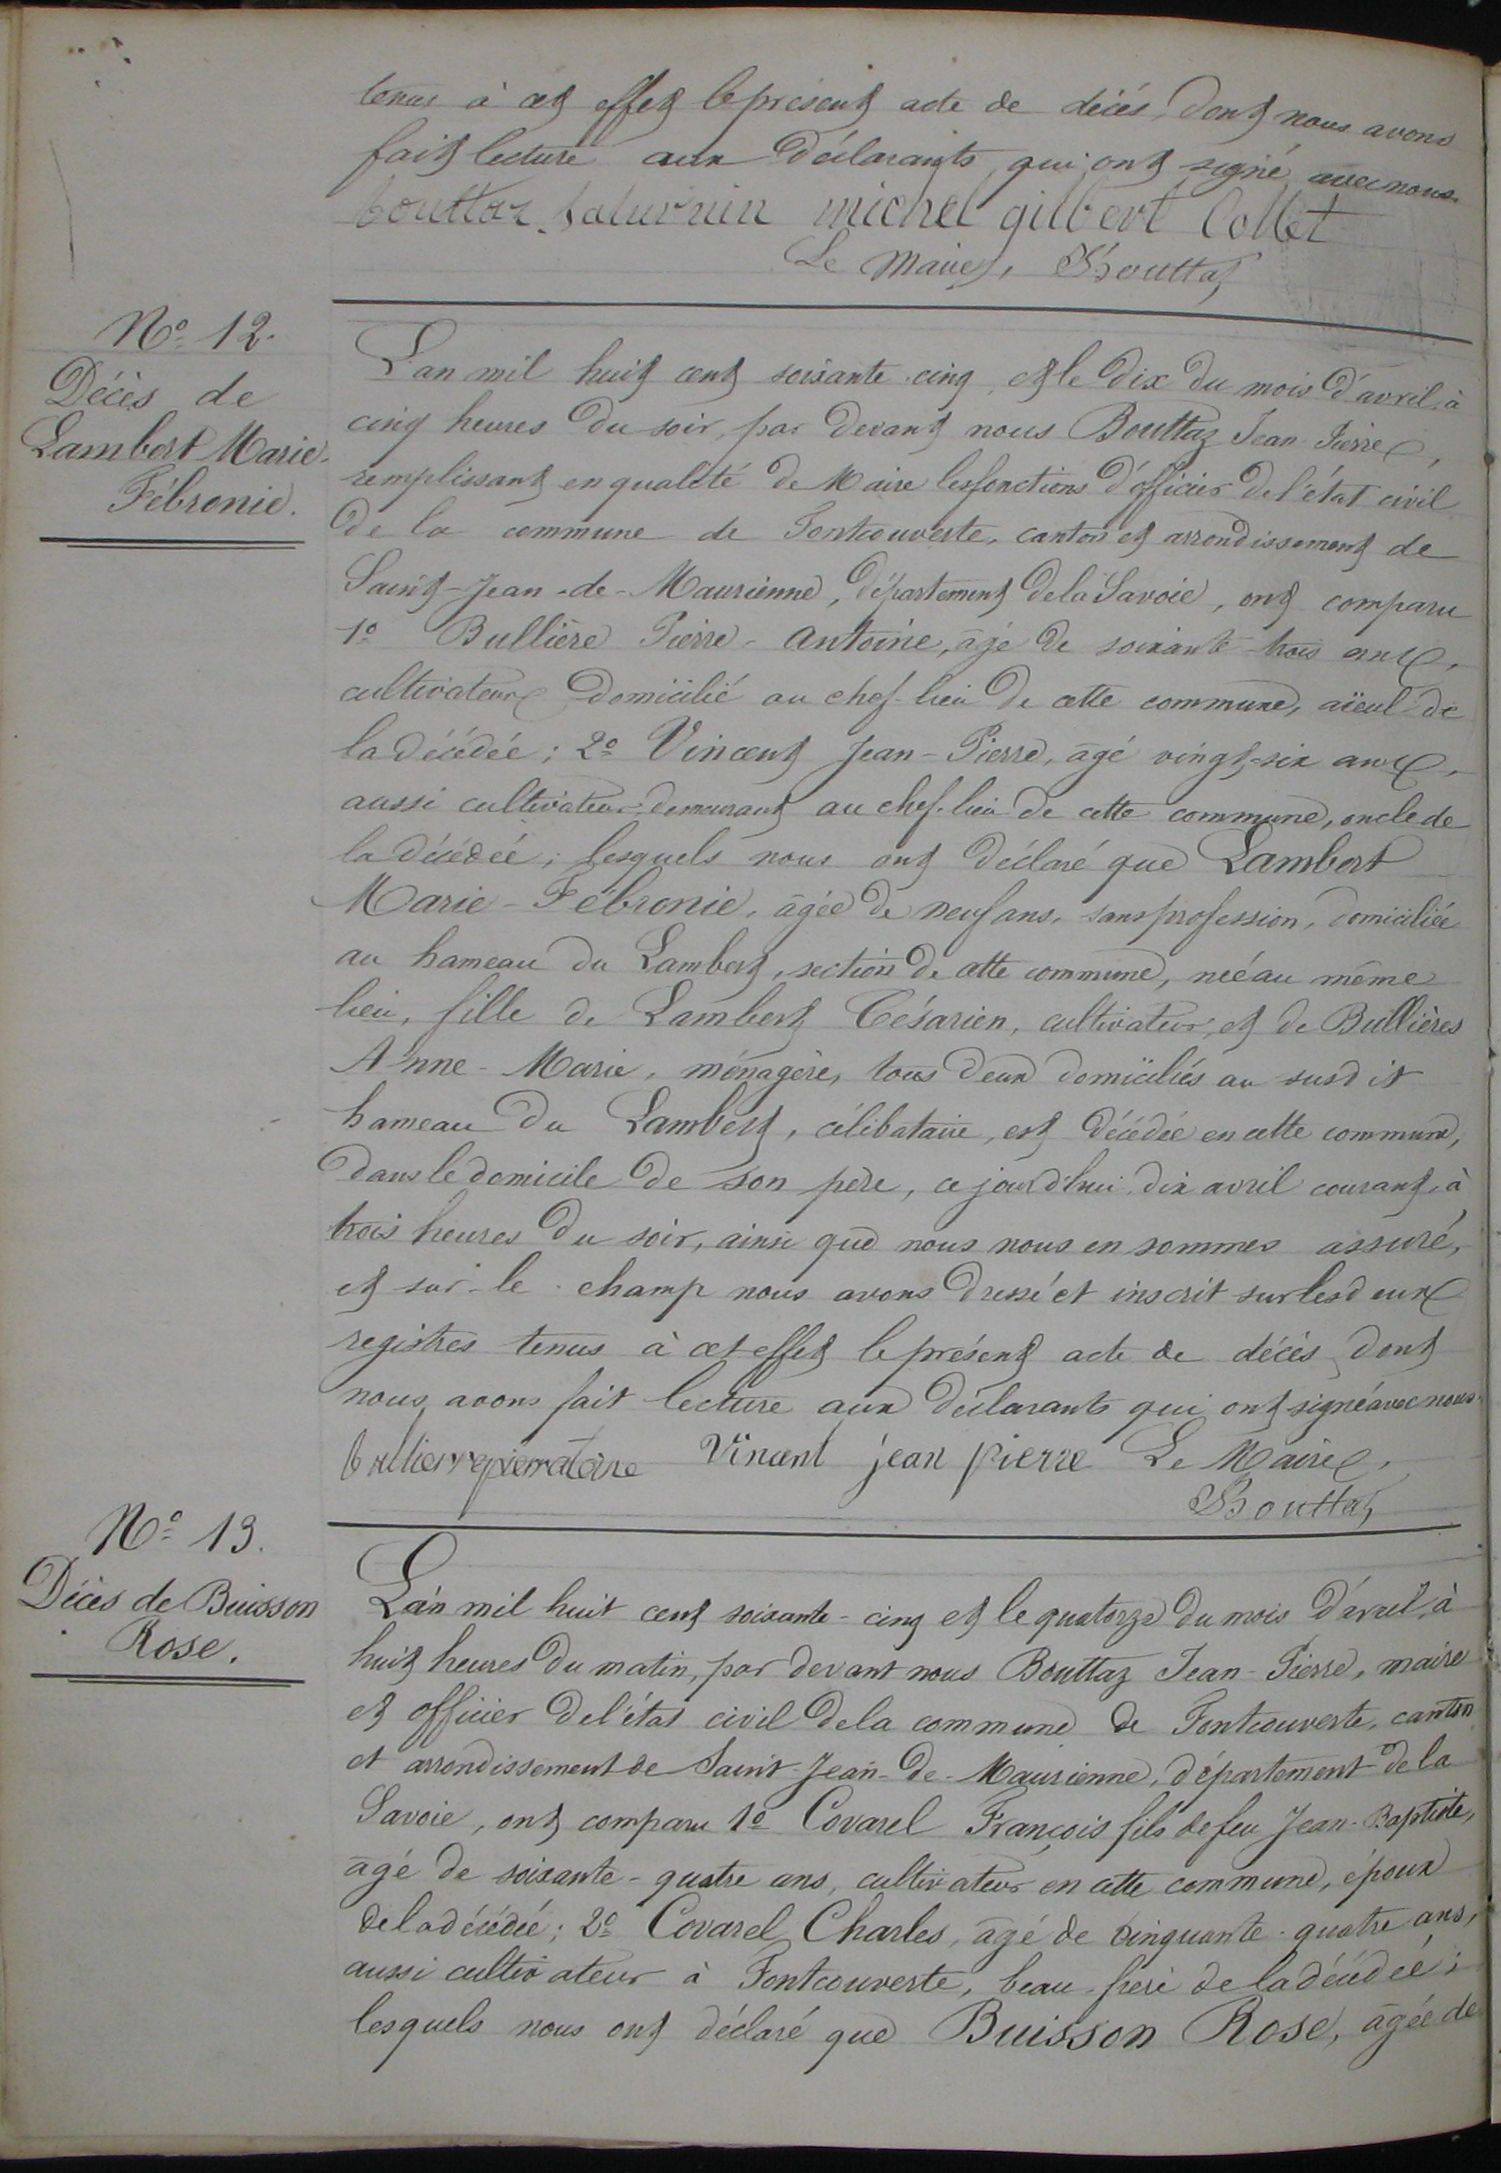 tenus à cet effet le présent acte de décès, dont nous avons
fait lecture aux déclarants qui ont signé avec nous.
bouttaz saturnin michel gilbert Collet
Le Maire, Bouttaz
N° 12.
Décès de
Lambert Marie-
Fébronie.
L'an mil huit cent soixante-cinq et le dix du mois d'avril, à
cinq heures du soir, par devant nous Bouttaz Jean-Pierre,
remplissant en qualité de Maire les fonctions d'officier de l'état civil
de la commune de Fontcouverte, canton et arrondissement de
Saint-Jean-de-Maurienne, département de la Savoie, ont comparu
1° Bullière Pierre-Antoine, âgé de soixante-trois ans,
cultivateur domicilié au chef-lieu de cette commune, aïeul de
la décédée; 2° Vincent Jean-Pierre, âgé vingt-six ans,
aussi cultivateur demeurant au chef-lieu de cette commune, oncle de
la décédée; lesquels nous ont déclaré que Lambert
Marie-Fébronie, âgée de neuf ans, sans profession, domiciliée
au hameau du Lambert, section de cette commune, née au même
lieu, fille de Lambert Césarien, cultivateur, et de Bullières
Anne-Marie, ménagère, tous deux domiciliés au susdit
hameau du Lambert, célibataire, est décédée en cette commune,
dans le domicile de son père, ce jourd'hui dix avril courant, à
trois heures du soir, ainsi que nous nous en sommes assuré,
et sur-le-champ nous avons dressé et inscrit sur les deux
registres tenus à cet effet le présent acte de décès, dont
nous avons fait lecture aux déclarants qui ont signé avec nous.
Vincent jean pierre Le Maire,
Bouttaz
N° 13.
Décès de Buisson
Rose.
L'an mil huit cent soixante-cinq et le quatorze du mois d'avril, à
huit heures du matin, par devant nous Bouttaz Jean-Pierre, maire
et officier de l'état civil de la commune de Fontcouverte, canton
et arrondissement de Saint-Jean-de-Maurienne, département de la
Savoie, ont comparu 1° Covarel François fils de feu Jean-Baptiste,
âgé de soixante-quatre ans, cultivateur en cette commune, époux
de la décédée; 2° Covarel Charles, âgé de cinquante-quatre ans,
aussi cultivateur à Fontcouverte, beau-frère de la décédée;
lesquels nous ont déclaré que Buisson Rose, âgée de